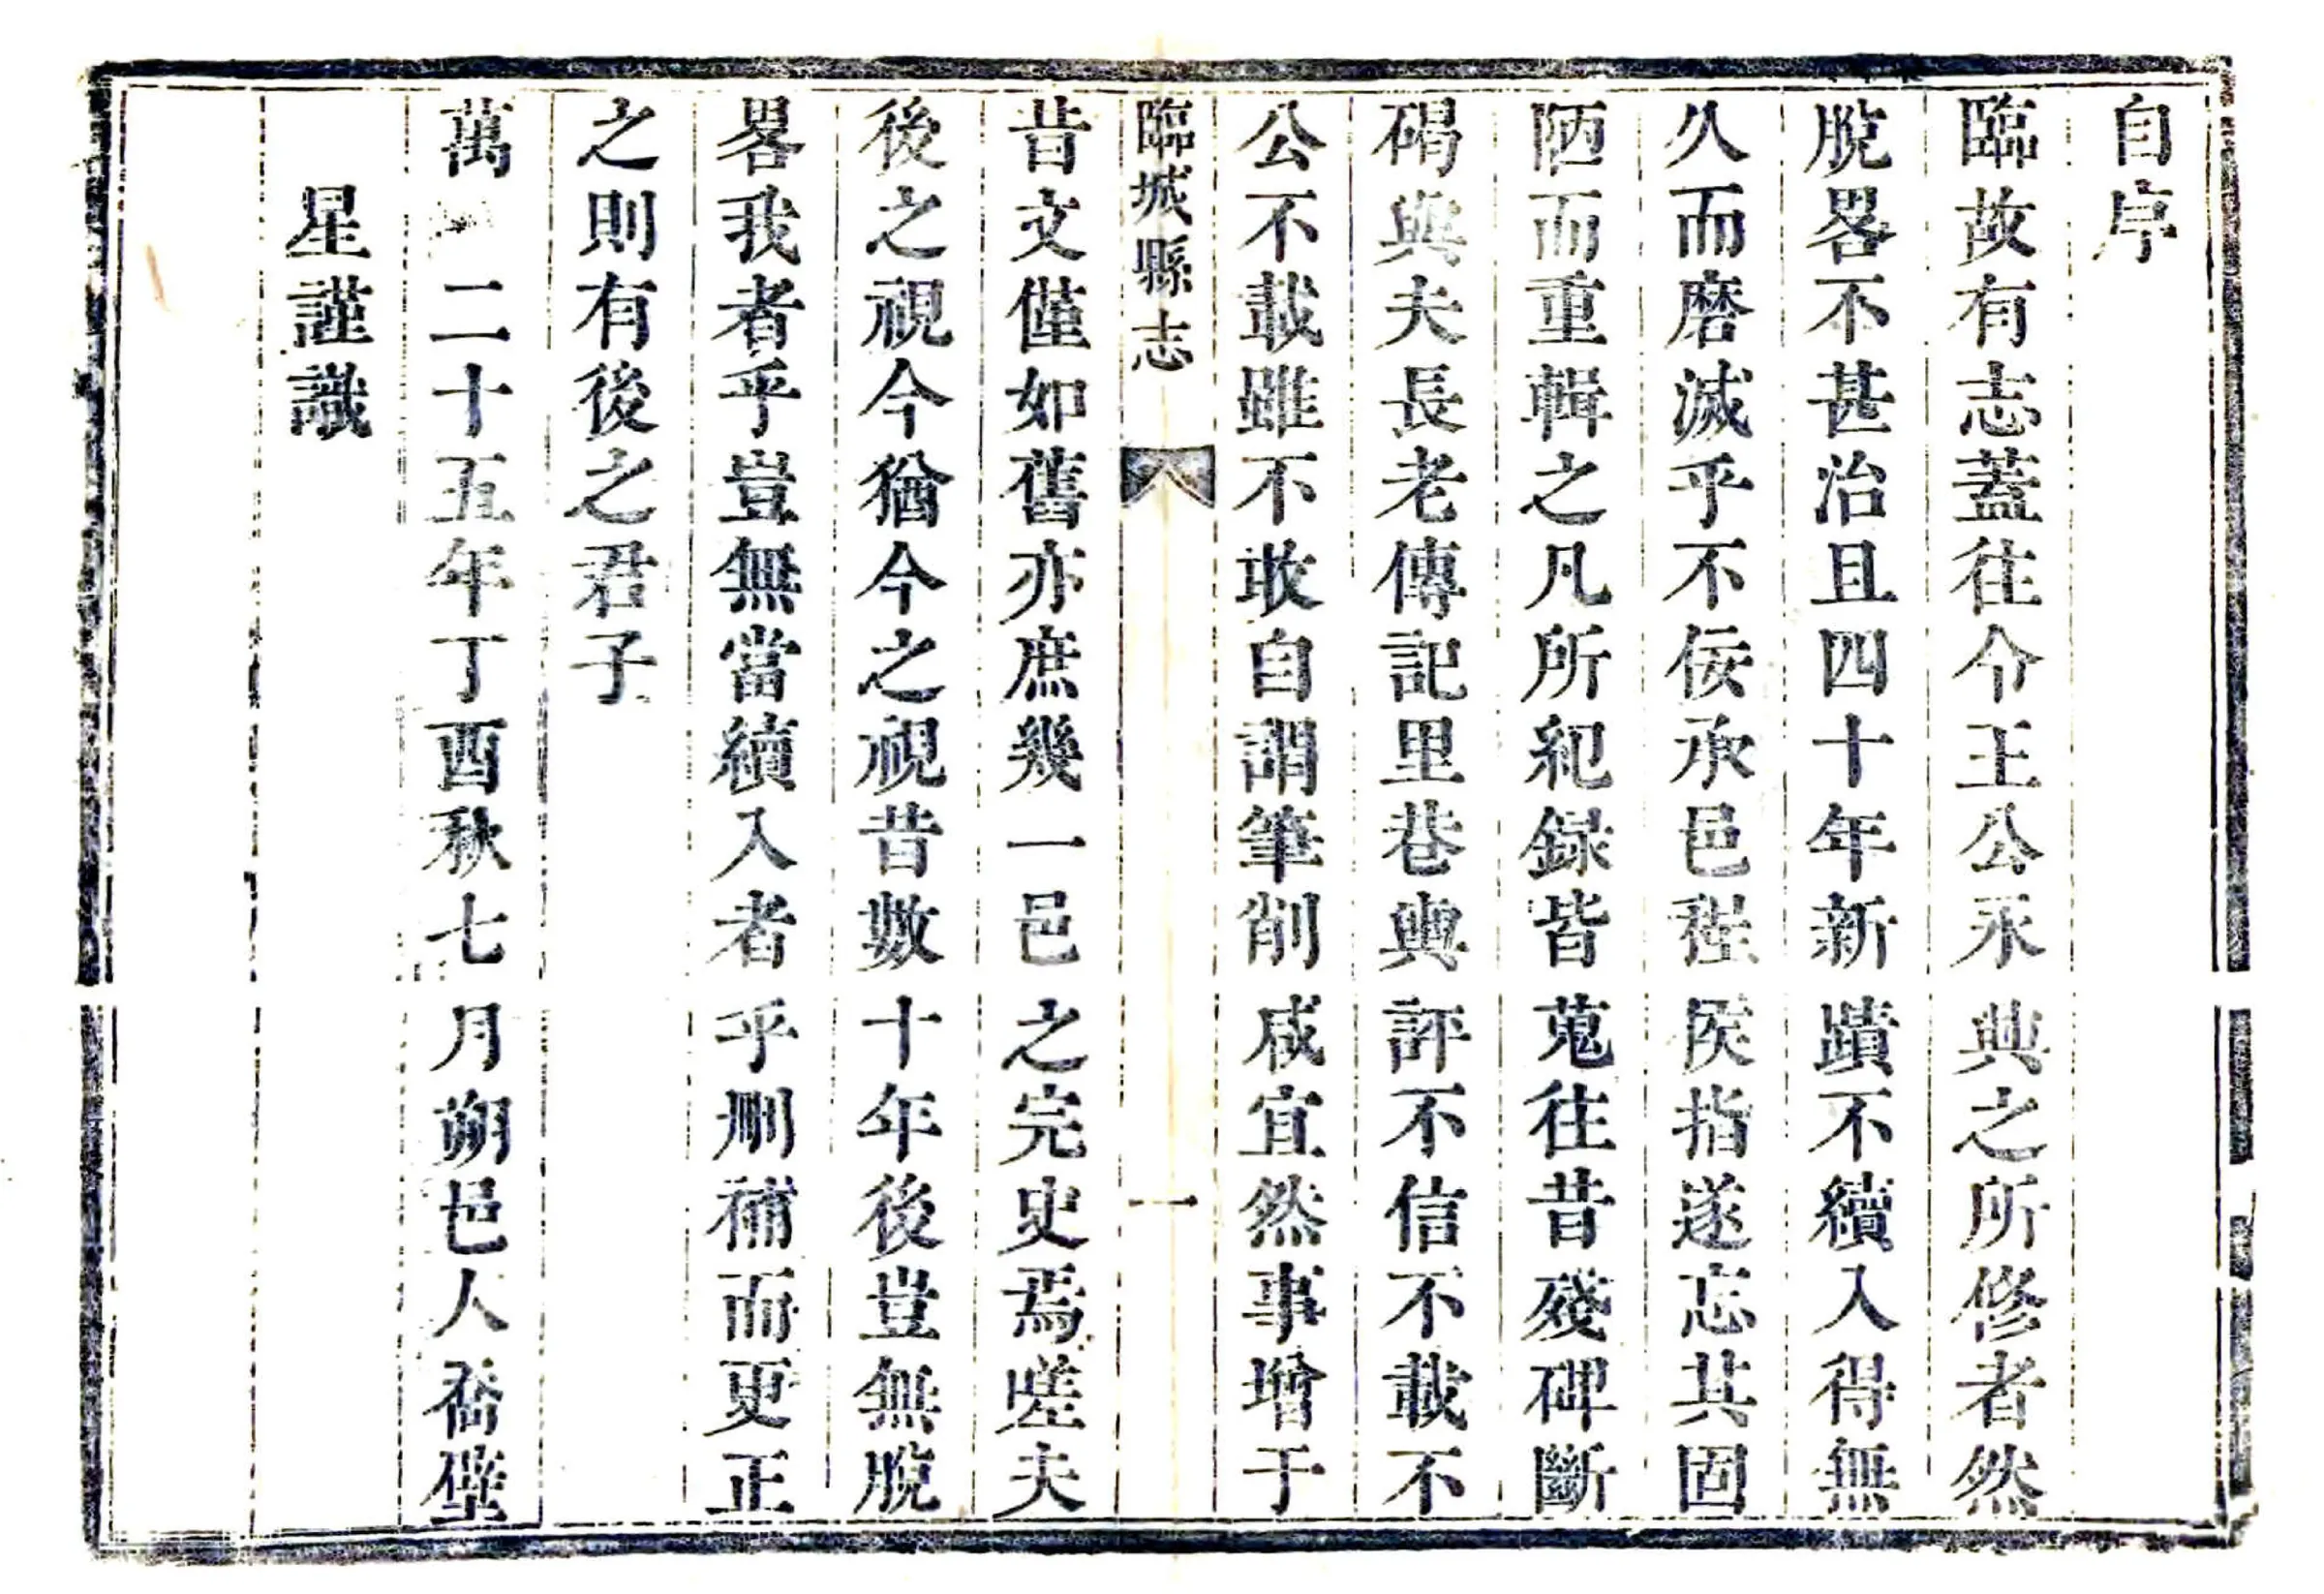 自序
臨故有志蓋往令王公永興之所修者然
脫畧不甚治且四十年新蹟不續入得無
久而磨滅乎不佞承邑程侯指遂忘其固
陋而重輯之凡所紀録皆蒐往昔殘碑斷
碣與夫長老傳記里巷輿評不信不載不
公不載雖不敢自謂筆削咸宜然事增于
臨城縣志 一
昔文僅如舊亦庶幾一邑之完史焉嗟夫
後之視今猶今之視昔數十年後豈無脫
畧我者乎豈無當續入者乎刪補而更正
之則有後之君子
萬 二十五年丁酉秋七月朔邑人喬壁
星謹識